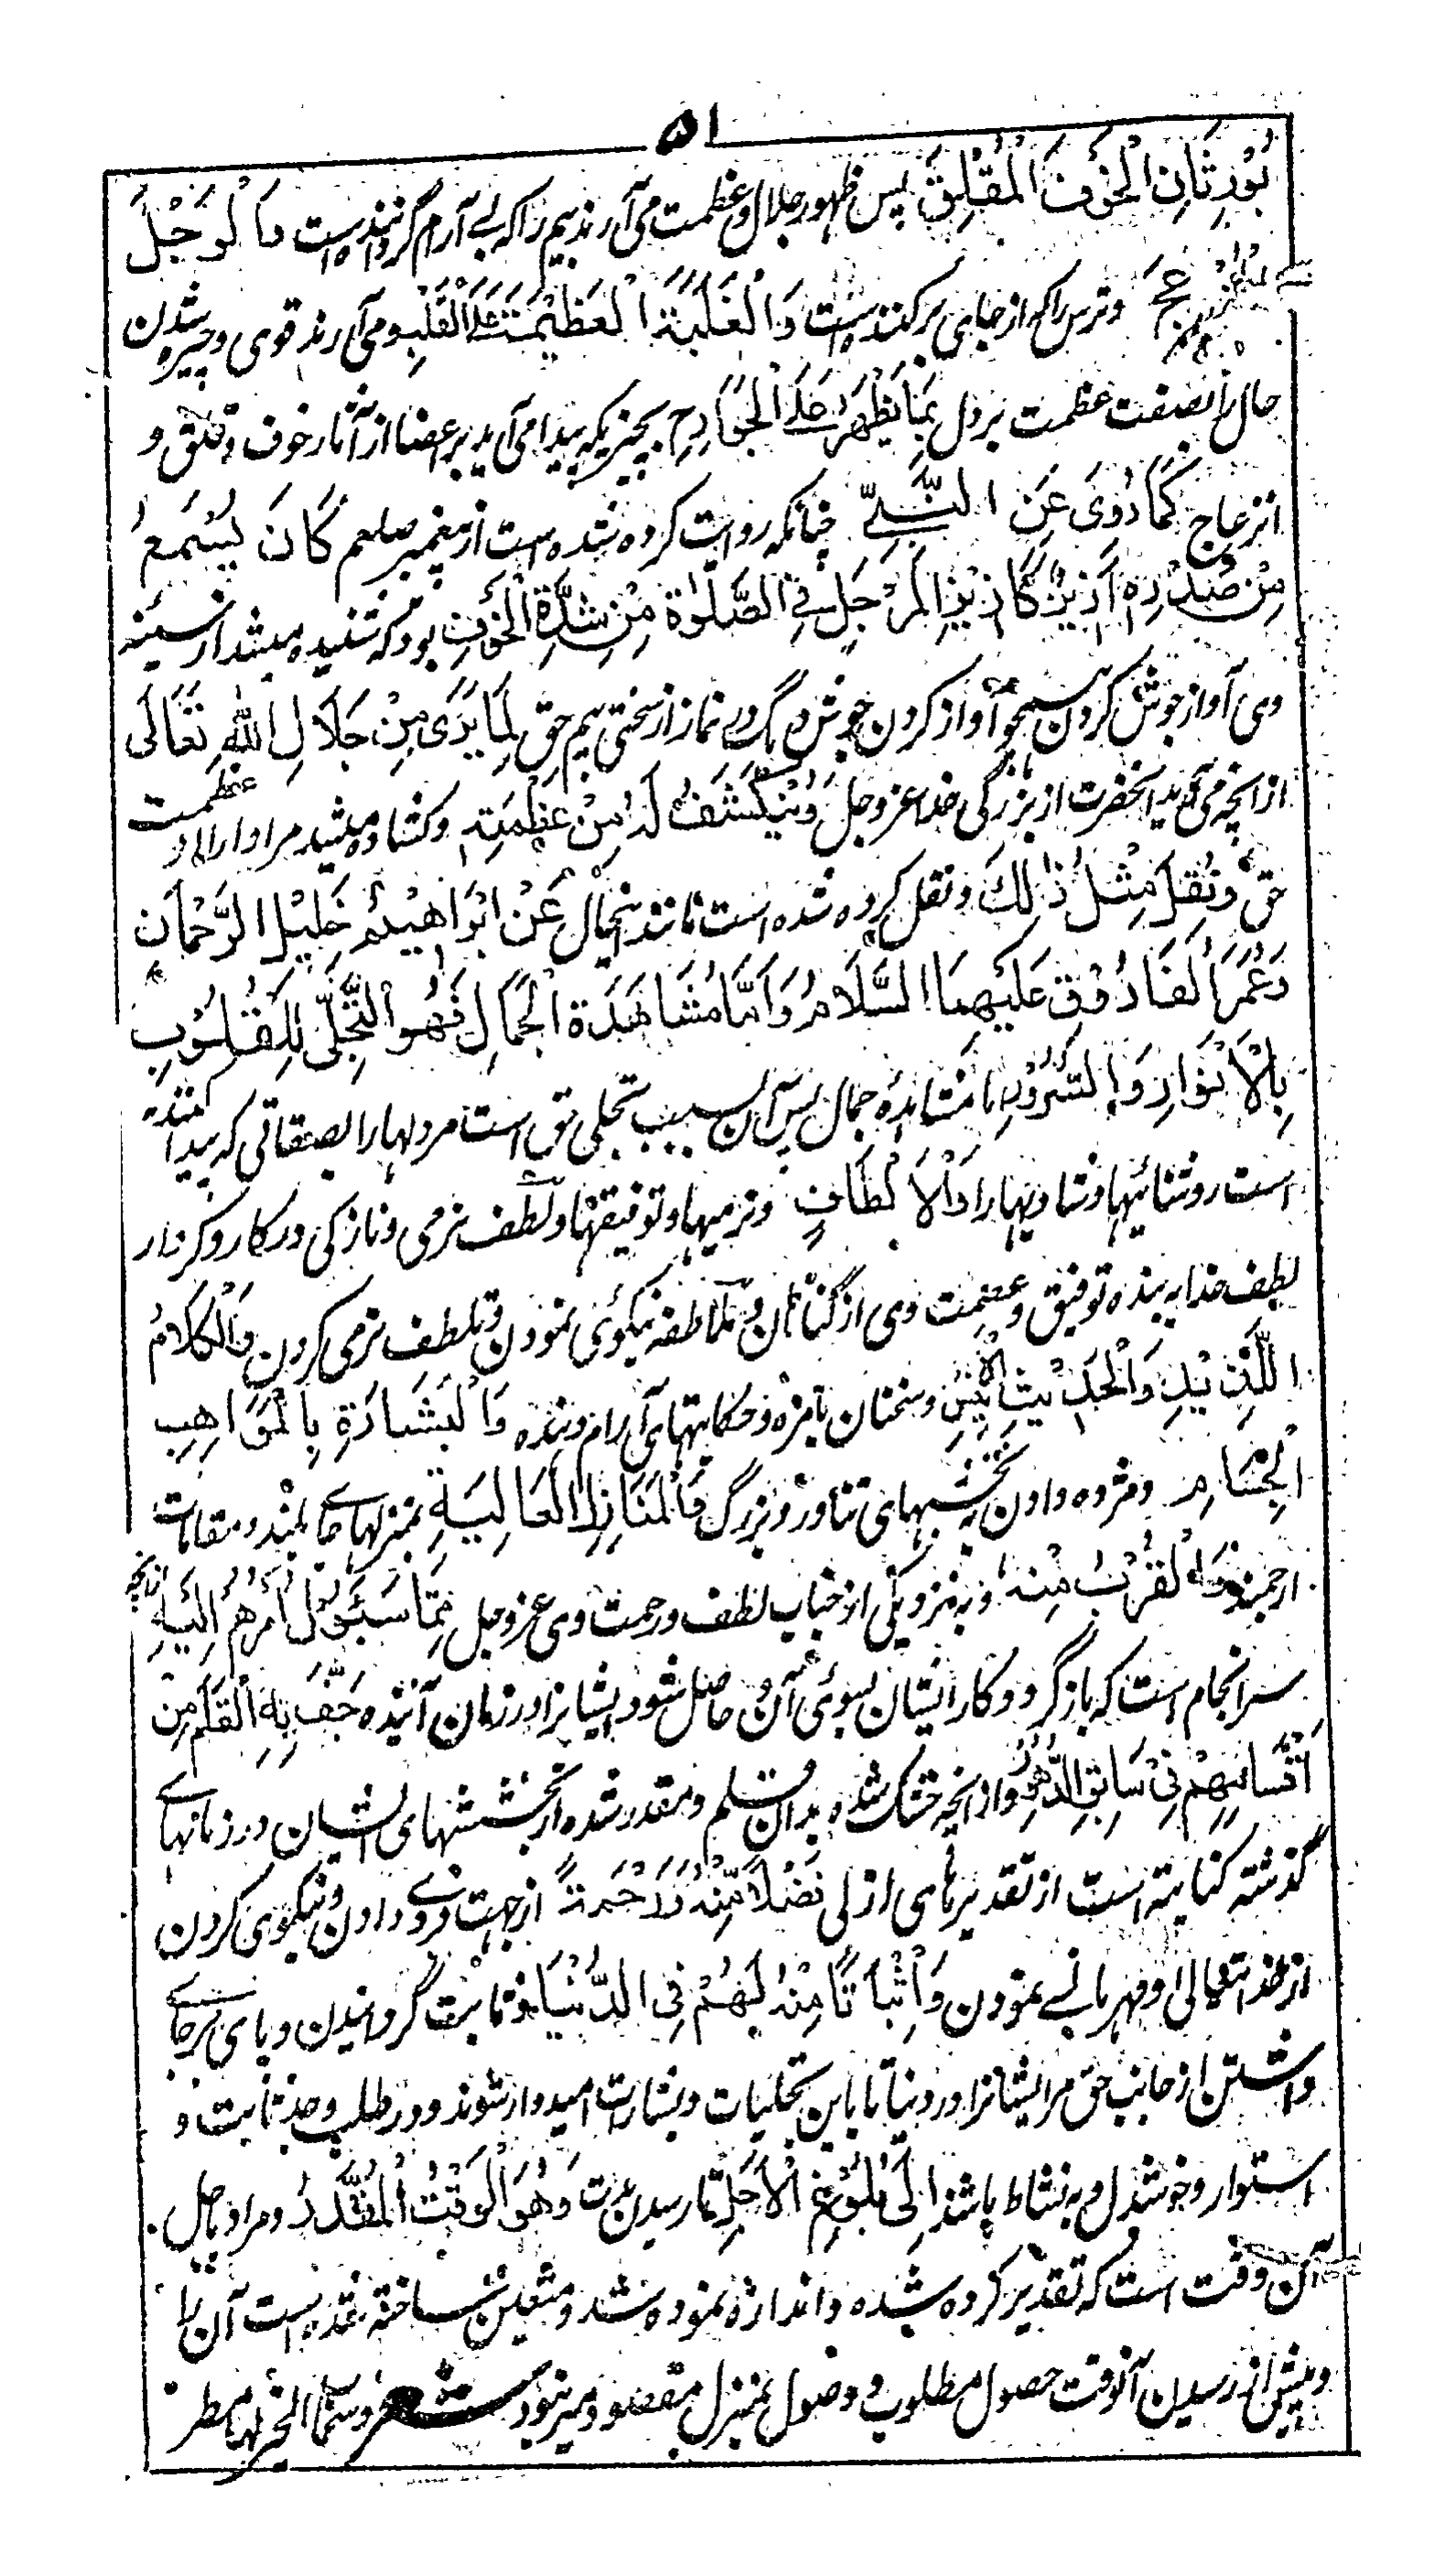 ۵۱
يُوْرِثَانِ الْخَوْفَ الْمُقْلِقَ پس ظهور جلال و عظمت می آرند بیم را که بے آرام گرداننده است وَالْوَجَلَ
الْمُزْعِجَ وترس راکه از جای برکننده است وَالْغَلَبَةَ الْعَظِيْمَةَ عَلَى الْقَلْبِ و می آرند قوی و چیره شدن
حال را بصفت عظمت بر دل بِمَا يَظْهَرُ عَلَى الْجَوَارِحِ بچیزیکه پیدا می آید بر اعضا از آثار خوف و قلق و
انزعاج كَمَا رُوِىَ عَنِ النَّبِيِّ چنانکه روایت کرده شده است از پیغمبر صلعم كَانَ يُسْمَعُ
مِنْ صَدْرِهٖ اَزِيْزٌ كَاَزِيْزِ الْمِرْجَلِ فِي الصَّلٰوةِ مِنْ شِدَّةِ الْخَوْفِ بود که شنیده میشد از سینه
وی آواز جوش کردن همچو آواز کردن جوش دیگ در نماز از سختی بیم حق لِمَا يَرٰى مِنْ جَلَالِ اللّٰهِ تَعَالٰى
از انچه می دید آنحضرت از بزرگی خدا عز وجل وَيَنْكَشِفُ لَهٗ مِنْ عَظْمَتِهٖ و کشاده میشد مر او را از عظمت
حق وَنُقِلَ مِثْلُ ذٰلِكَ و نقل کرده شده است مانند اینحال عَنْ اِبْرَاهِيْمَ خَلِيْلِ الرَّحْمٰنِ
وَعُمَرَ الْفَارُوْقِ عَلَيْهِمَا السَّلَامُ وَاَمَّا مُشَاهَدَةُ الْجَمَالِ فَهُوَ التَّجَلِّى لِلْقُلُوْبِ
بِالْاَنْوَارِ وَالسُّرُوْرِ اما مشاهدۀ جمال پس آن بسبب تجلی حق است مر دلها را بصفاتی که پیدا کننده
است روشنائیها و شادیها را وَالْاَلْطَافِ و نرمیها و توفیقها و لطف نرمی و نازکی در کار و کردار
لطف خدا به بنده توفیق و عصمت وی از گناهان و ملاطفه نیکوئی نمودن و تلطف نرمی کردن وَالْكَلَامِ
اللَّذِيْذِ وَالْحَدِيْثِ الْاَنِيْسِ و سخنان بامزه و حکایتهای آرام دهنده وَالْبَشَارَةِ بِالْمَوَاهِبِ
الْجِسَامِ و مژده دادن به بخششهای تناور و بزرگ وَالْمَنَازِلِ الْعَالِيَةِ بمنزلهاے بلند و مقامات
ارجمند وَالْقُرْبِ مِنْهُ و به نزدیکی از جناب لطف و رحمت وی عز وجل مِمَّا سَيَؤُلُ اَمْرُهُمْ اِلَيْهِ از انچه
سرانجام است که بازگردد کار ایشان بسوئی آن و حاصل شود ایشانرا در زمان آئنده جَفَّ بِهِ الْقَلَمُ مِنْ
اَقْسَامِهِمْ فِىْ سَابِقِ الدُّهُوْرِ و از انچه خشک شده بدان قلم و مقدر شده از بخششهای ایشان در زمانهاے
گذشته کنایته است از تقدیرهای ازلی فَضْلًا مِّنْهُ وَرَحْمَةً از جهت فزونے دادن و نیکوی کردن
از خدا تعالی و مهربانے نمودن وَاِثْبَاتًا مِّنْهُ لَهُمْ فِى الدُّنْيَا و ثابت گردانیدن و پای برجاے
داشتن از جانب حق مر ایشانرا در دنیا تا باین تجلیات و بشارات امیدوار شوند و در طلب و جد ثابت و
استوار و خوشدل و به نشاط باشند اِلٰى بُلُوْغِ الْاَجَلِ تا رسیدن مدت وَهُوَ الْوَقْتُ الْمُقَدَّرُ و مراد باجل
آن وقت است که تقدیر کرده شده و اندازه نموده شد و متعین ساخته شده است آن را
و پیش از رسیدن آنوقت حصول مطلوب و وصول بمنزل مقصود میسر نبود شعر